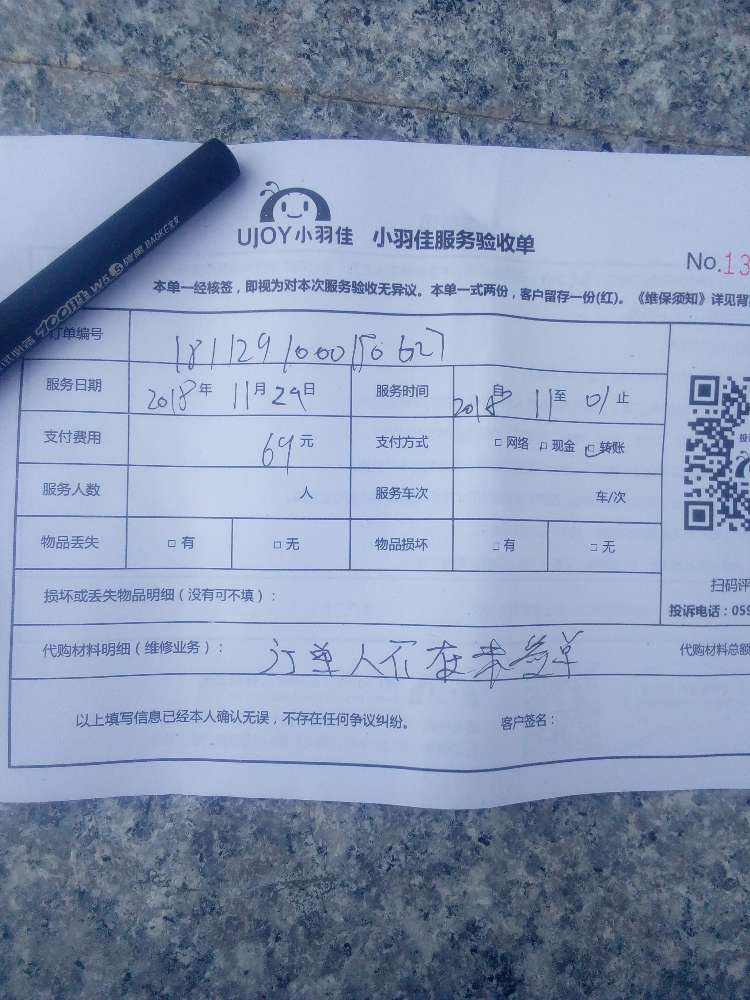 UJOY小羽佳 小羽佳服务验收单
No.13
本单一经核签，即视为对本次服务验收无异议。本单一式两份，客户留存一份(红)。《维保须知》详见背
订单编号 181129100015062
服务日期 2018年11月29日 服务时间 自2018 11至01止
支付费用 69元 支付方式 □网络 □现金 □转账
服务人数 人 服务车次 车/次
物品丢失 □有 □无 物品损坏 □有 □无
扫码评
损坏或丢失物品明细（没有可不填）：
投诉电话：059
代购材料明细（维修业务）： 订单人不在未签单 代购材料总额
以上填写信息已经本人确认无误，不存在任何争议纠纷。 客户签名：
BAOKE宝克